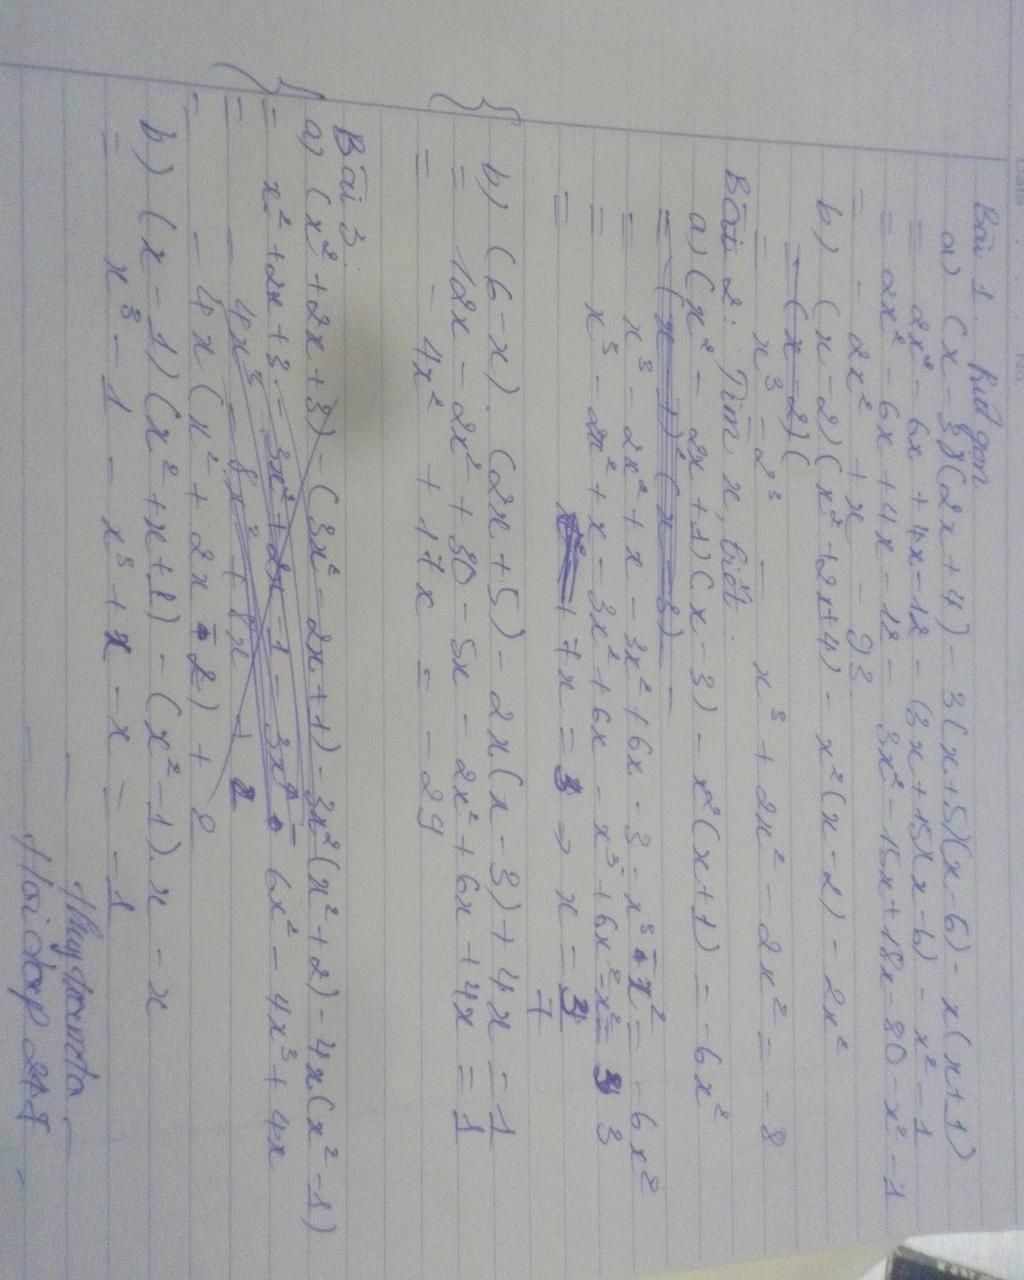 Bài 1. Rút gọn
a) (x - 3)(2x + 4) - 3(x + 5)(x - 6) - x(x + 1)
= 2x² - 6x + 4x - 12 - (3x + 15)(x - 6) - x² - 1
= 2x² - 6x + 4x - 12 - 3x² - 15x + 18x - 80 - x² - 1
= - 2x² + x - 93
b) (x - 2)(x² + 2x + 4) - x²(x - 2) - 2x²
= (x - 2)(
= x³ - 2³ - x³ + 2x² - 2x² = - 8
Bài 2: Tìm x, biết:
a) (x² - 2x + 1)(x - 3) - x²(x + 1) = - 6x²
= x³ - 2x² + x - 3x² + 6x - 3 - x³ - x² = - 6x²
= x³ - 2x² + x - 3x² + 6x - x³ + 6x² - x² = 3
= 7x = 3 → x = 3/7
b) (6 - x). (2x + 5) - 2x.(x - 3) + 4x = 1
= 12x - 2x² + 30 - 5x - 2x² + 6x + 4x = 1
= - 4x² + 17x = - 29
Bài 3.
a) (x² + 2x + 3) - (3x² - 2x + 1) - 3x²(x² + 2) - 4x.(x² - 1)
= x² + 2x + 3 - 3x² + 2x - 1 - 3x⁴ - 6x² - 4x³ + 4x
= - 4x³ - 8x² + 8x + 2
= - 4x (x² + 2x - 2) + 2
b) (x - 1)(x² + x + 1) - (x² - 1). x - x
= x³ - 1 - x³ + x - x = - 1
Hoidap 247